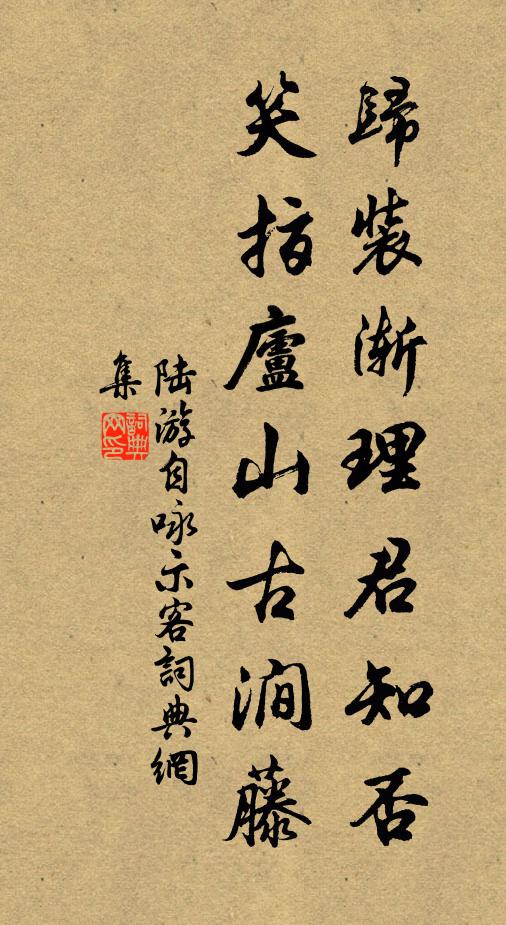 歸裝漸理君知否
笑指廬山古澗藤
陆游自咏示客詞典網
集
詞典
网印